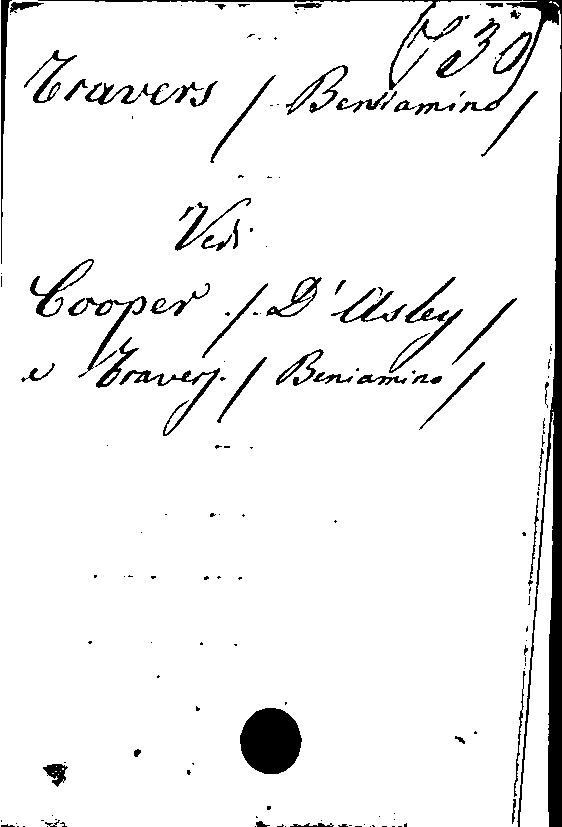 (730)
Travers / Beniamino /
Vedi
Cooper / D'Asley /
e Travers / Beniamino /